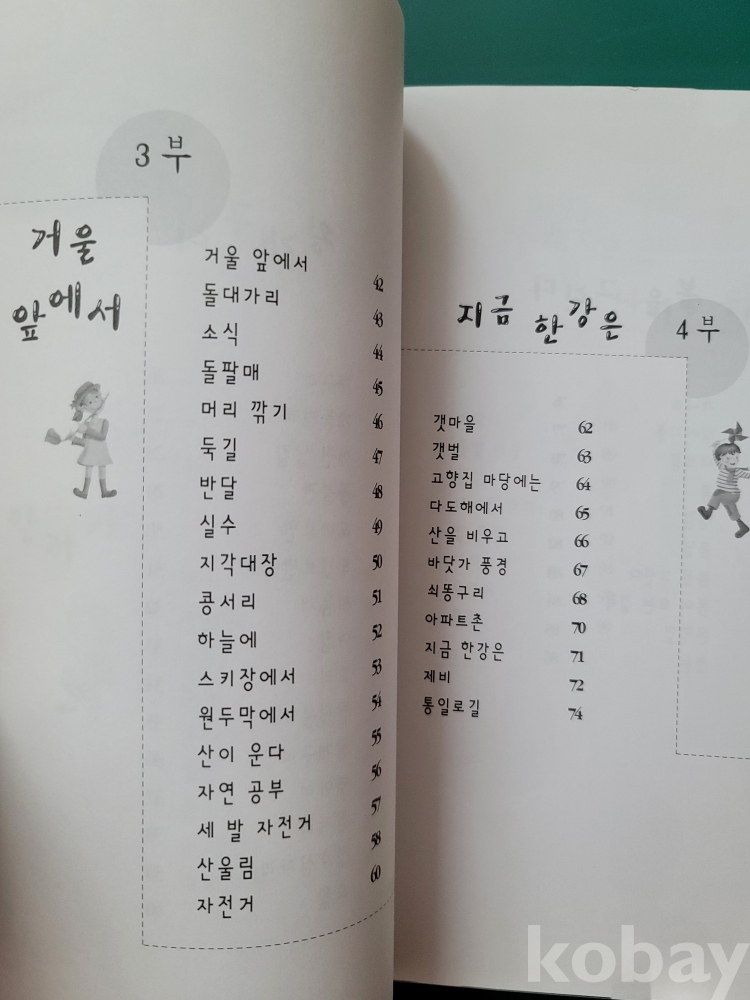 3부
거울
앞에서
거울 앞에서 42
돌대가리 43
소식 44
돌팔매 45
머리 깎기 46
둑길 47
반달 48
실수 49
지각대장 50
콩서리 51
하늘에 52
스키장에서 53
원두막에서 54
산이 운다 55
자연 공부 56
세 발 자전거 57
산울림 58
자전거 60
지금 한강은
4부
갯마을 62
갯벌 63
고향집 마당에는 64
다도해에서 65
산을 비우고 66
바닷가 풍경 67
쇠똥구리 68
아파트촌 70
지금 한강은 71
제비 72
통일로길 74
kobay